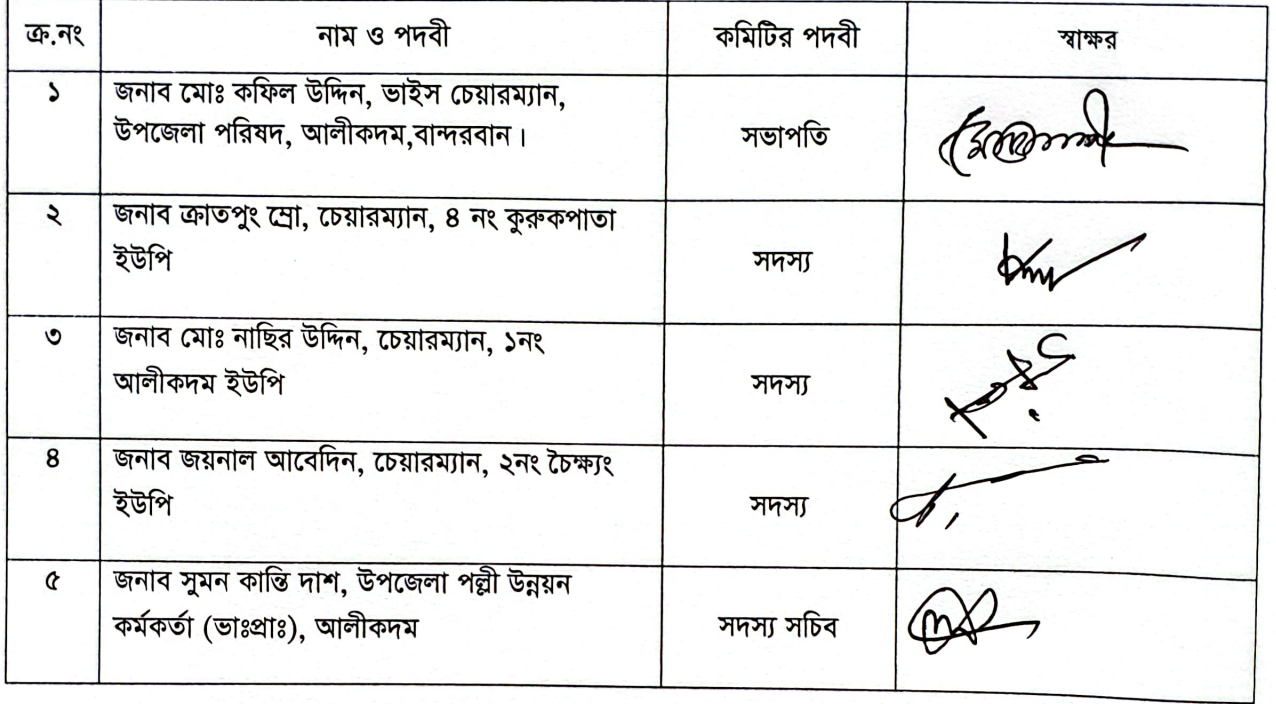 ক্র.নং নাম ও পদবী কমিটির পদবী স্বাক্ষর
১ জনাব মোঃ কফিল উদ্দিন, ভাইস চেয়ারম্যান,
উপজেলা পরিষদ, আলীকদম,বান্দরবান। সভাপতি
২ জনাব ক্রাতপুং ম্রো, চেয়ারম্যান, ৪ নং কুরুকপাতা
ইউপি সদস্য
৩ জনাব মোঃ নাছির উদ্দিন, চেয়ারম্যান, ১নং
আলীকদম ইউপি সদস্য
৪ জনাব জয়নাল আবেদিন, চেয়ারম্যান, ২নং চৈক্ষ্যং
ইউপি সদস্য
৫ জনাব সুমন কান্তি দাশ, উপজেলা পল্লী উন্নয়ন
কর্মকর্তা (ভাঃপ্রাঃ), আলীকদম সদস্য সচিব